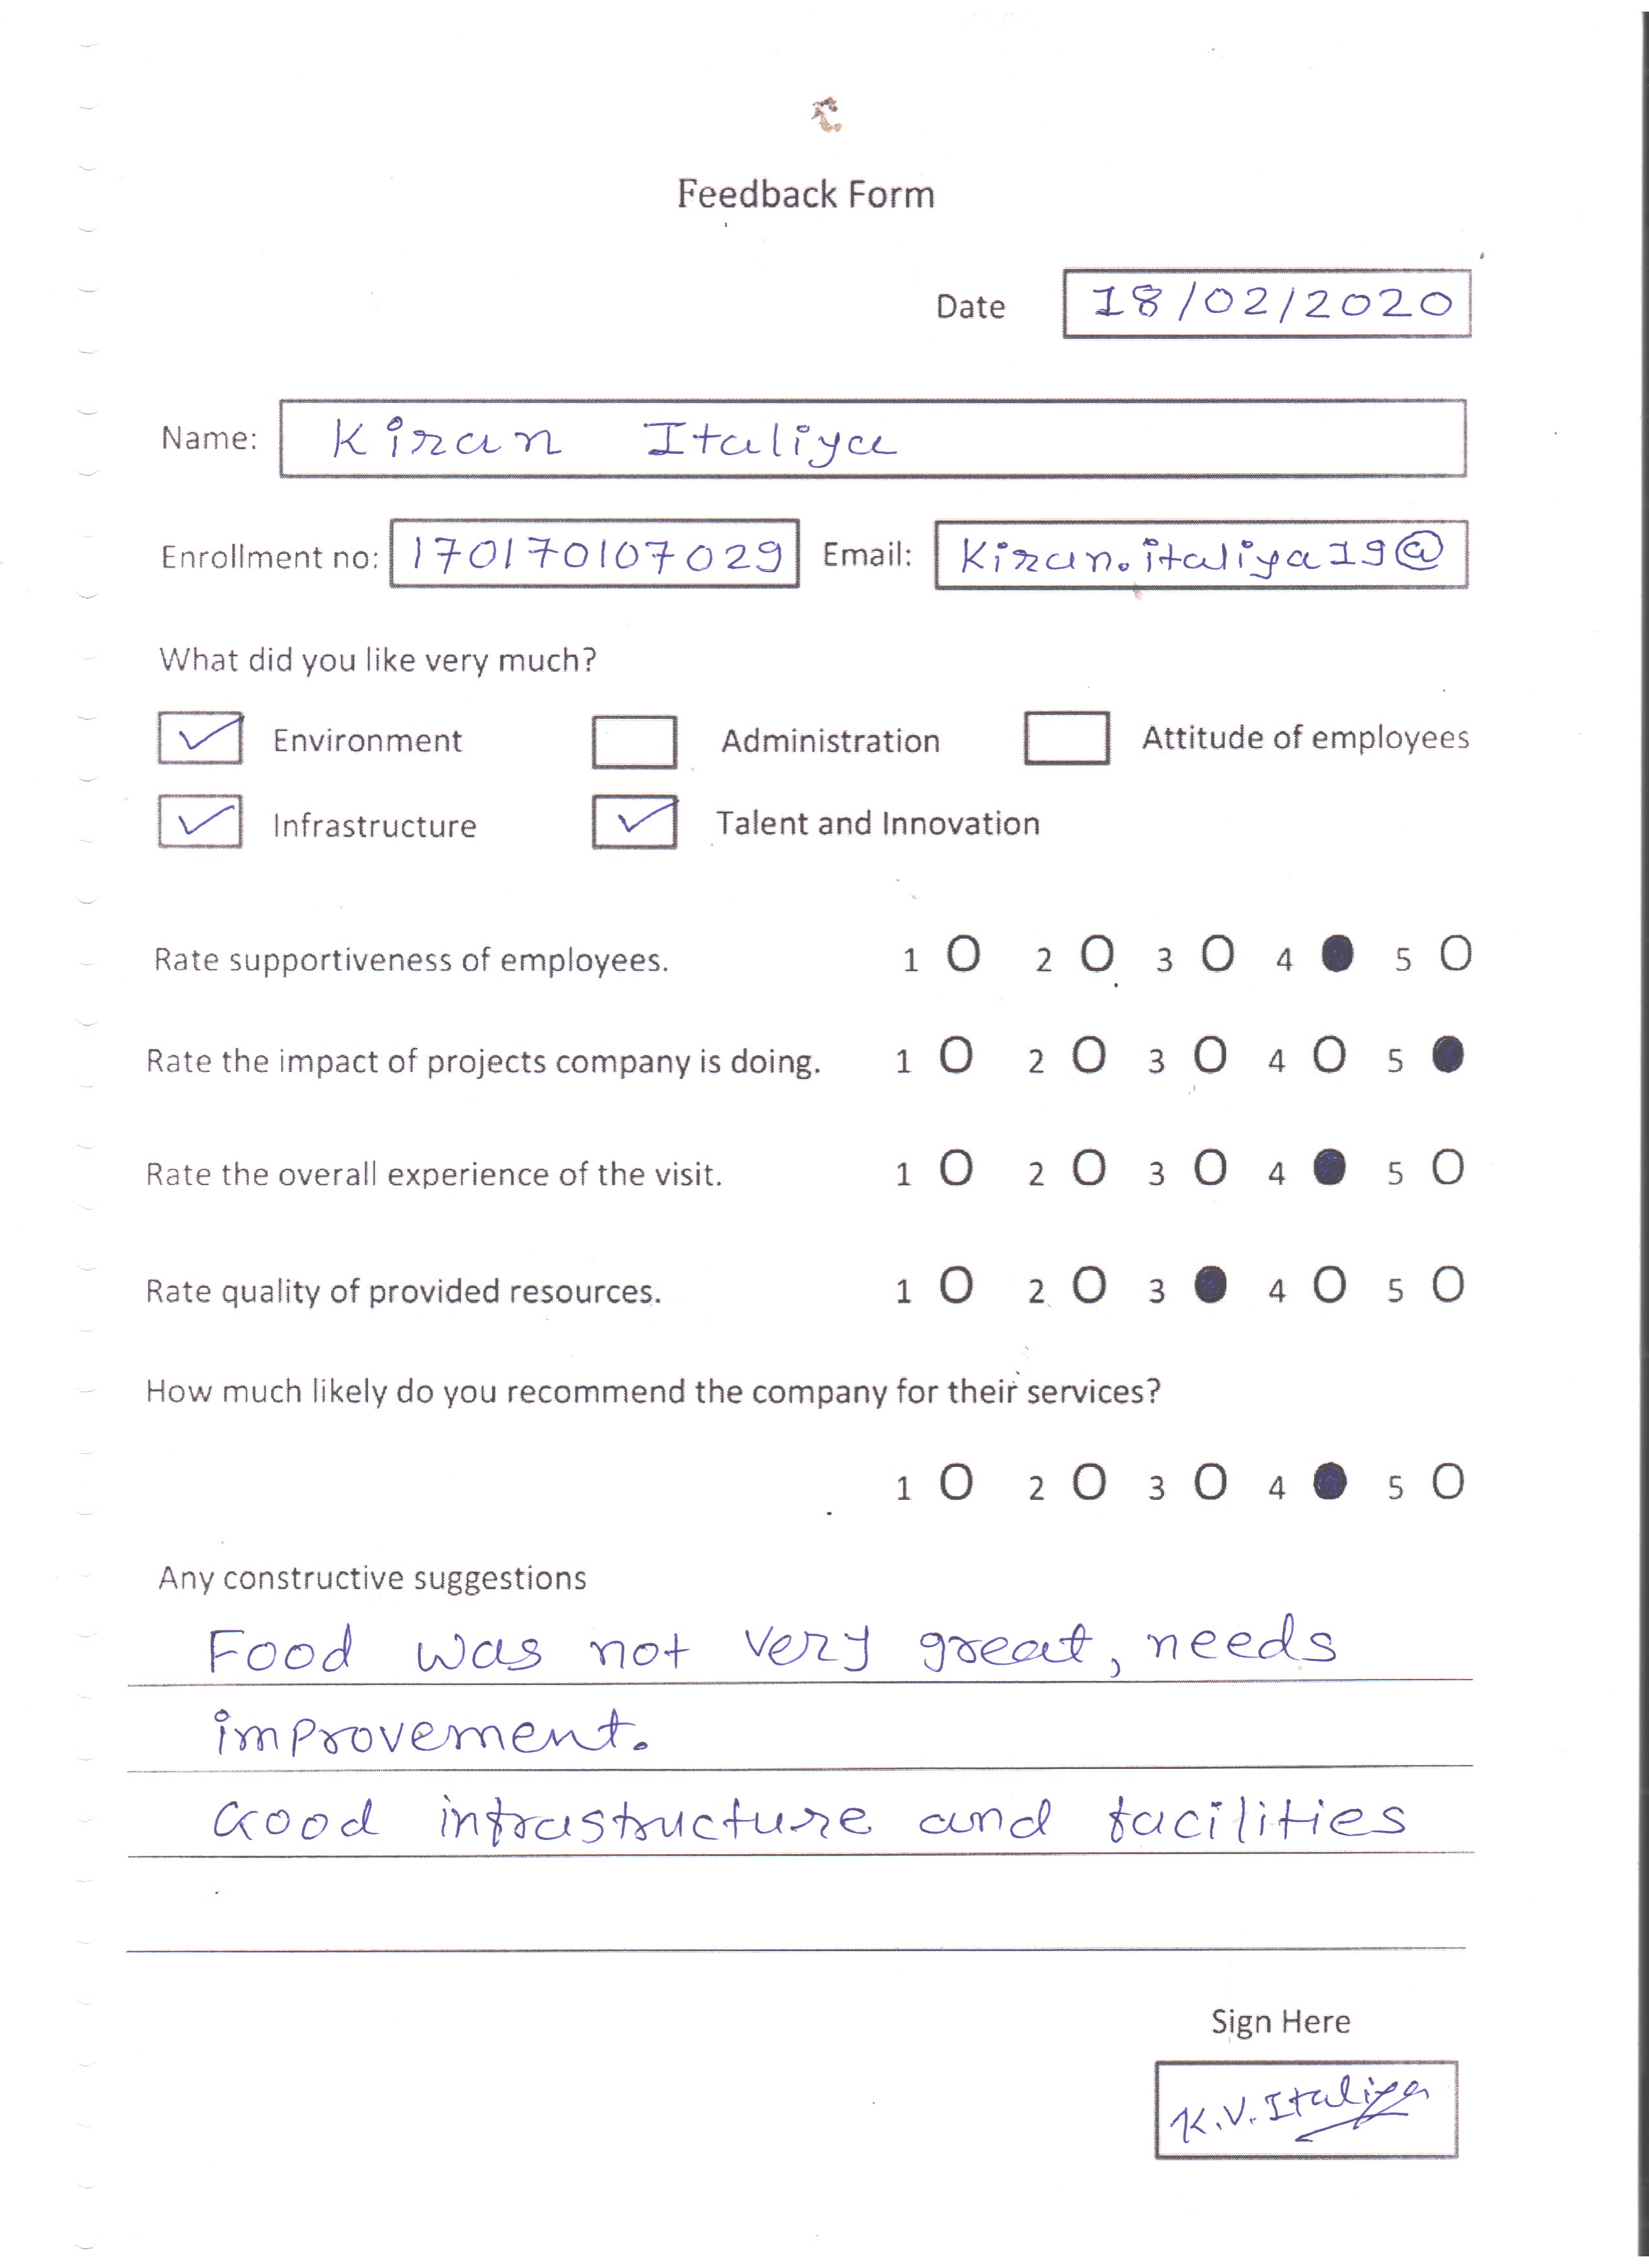 Feedback Form
Date 18/02/2020
Name: Kiran Italiya
Enrollment no: 170170107029 Email: Kiran.italiya19@
What did you like very much?
Environment Administration Attitude of employees
Infrastructure Talent and Innovation
Rate supportiveness of employees. 1 2 3 4 5
Rate the impact of projects company is doing. 1 2 3 4 5
Rate the overall experience of the visit. 1 2 3 4 5
Rate quality of provided resources. 1 2 3 4 5
How much likely do you recommend the company for their services?
1 2 3 4 5
Any constructive suggestions
Food was not very great, needs
improvement.
Good infrastructure and facilities
Sign Here
K.V.Italiya